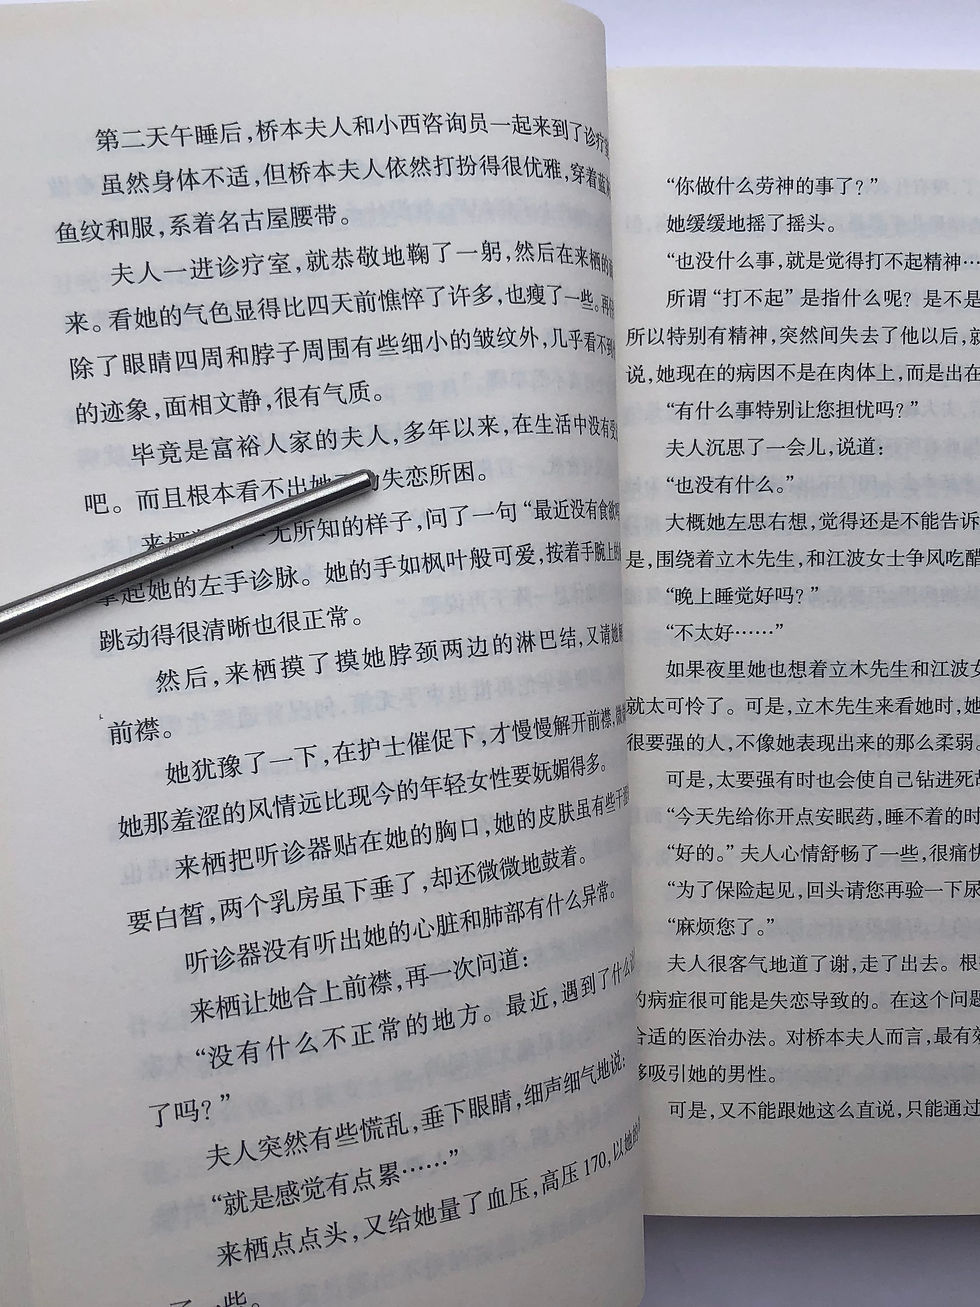 第二天午睡后，桥本夫人和小西咨询员一起来到了诊疗室
虽然身体不适，但桥本夫人依然打扮得很优雅，穿着蓝
鱼纹和服，系着名古屋腰带。
夫人一进诊疗室，就恭敬地鞠了一躬，然后在来栖的
来。看她的气色显得比四天前憔悴了许多，也瘦了一些。再
除了眼睛四周和脖子周围有些细小的皱纹外，几乎看不到
的迹象，面相文静，很有气质。
毕竟是富裕人家的夫人，多年以来，在生活中没有受
吧。而且根本看不出她 失恋所困。
来栖 一无所知的样子，问了一句“最近没有食欲吗
拿起她的左手诊脉。她的手如枫叶般可爱，按着手腕上的
跳动得很清晰也很正常。
然后，来栖摸了摸她脖颈两边的淋巴结，又请她解
前襟。
她犹豫了一下，在护士催促下，才慢慢解开前襟，微
她那羞涩的风情远比现今的年轻女性要妩媚得多。
来栖把听诊器贴在她的胸口，她的皮肤虽有些干
要白皙，两个乳房虽下垂了，却还微微地鼓着。
听诊器没有听出她的心脏和肺部有什么异常。
来栖让她合上前襟，再一次问道：
“没有什么不正常的地方。最近，遇到了什么
了吗？”
夫人突然有些慌乱，垂下眼睛，细声细气地说：
“就是感觉有点累……”
来栖点点头，又给她量了血压，高压170，以她的
了一些。
“你做什么劳神的事了？”
她缓缓地摇了摇头。
“也没什么事，就是觉得打不起精神…
所谓“打不起”是指什么呢？是不是
所以特别有精神，突然间失去了他以后，就
说，她现在的病因不是在肉体上，而是出在
“有什么事特别让您担忧吗？”
夫人沉思了一会儿，说道：
“也没有什么。”
大概她左思右想，觉得还是不能告诉
是，围绕着立木先生，和江波女士争风吃醋
“晚上睡觉好吗？”
“不太好……”
如果夜里她也想着立木先生和江波女
就太可怜了。可是，立木先生来看她时，她
很要强的人，不像她表现出来的那么柔弱。
可是，太要强有时也会使自己钻进死胡
“今天先给你开点安眠药，睡不着的时
“好的。”夫人心情舒畅了一些，很痛快
“为了保险起见，回头请您再验一下尿
“麻烦您了。”
夫人很客气地道了谢，走了出去。根
的病症很可能是失恋导致的。在这个问题
合适的医治办法。对桥本夫人而言，最有效
够吸引她的男性。
可是，又不能跟她这么直说，只能通过